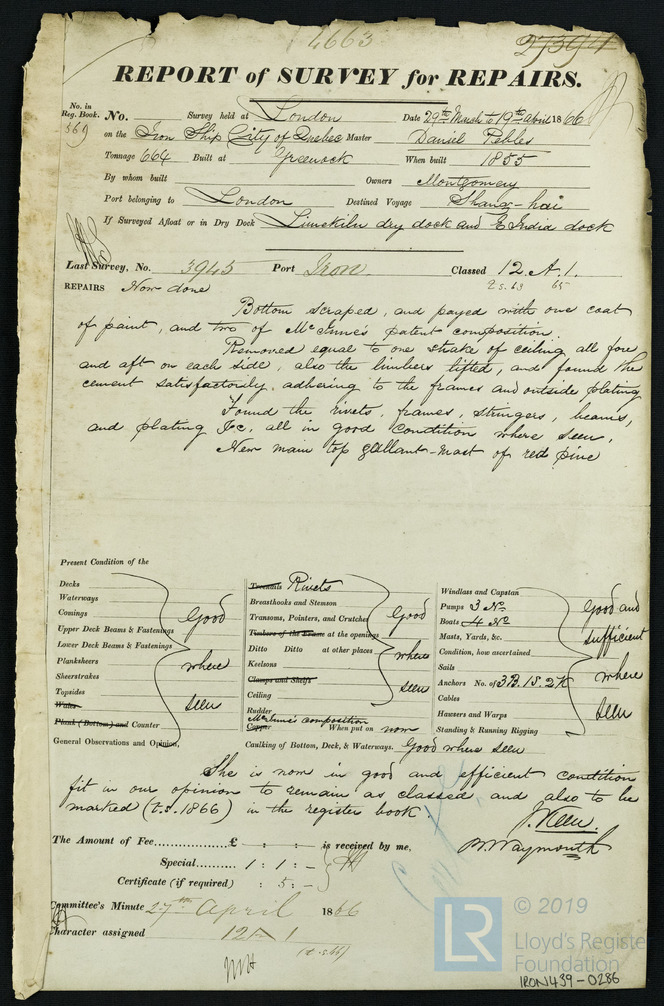 4663
REPORT of SURVEY for REPAIRS.
No. in Reg. Book. 369 No. Survey held at London Date 29th March to 19th April 1866
on the Iron Ship City of Quebec Master Daniel Pebles
Tonnage 664 Built at Greenock When built 1855
By whom built Owners Montgomery
Port belonging to London Destined Voyage Shang-hai
If Surveyed Afloat or in Dry Dock Limekiln dry dock and E India dock
Last Survey, No. 3945 Port Iron Classed 12. A. 1.
2 s. 63 65
REPAIRS Now done
Bottom scraped, and payed with one coat
of paint, and two of McInnes patent composition.
Removed equal to one strake of ceiling all fore
and aft on each side, also the limbers lifted, and found the
cement satisfactorily adhering to the frames and outside plating
Found the rivets, frames, stringers, beams,
and plating &c, all in good condition where seen,
New main top gallant-mast of red pine
Present Condition of the
Decks
Waterways
Comings
Upper Deck Beams & Fastenings
Lower Deck Beams & Fastenings
Planksheers
Sheerstrakes
Topsides
Wales
Plank (Bottom) and Counter
Good
where
seen
Treenails Rivets
Breasthooks and Stemson
Transoms, Pointers, and Crutches
Timbers of the Frame at the openings
Ditto Ditto at other places
Keelsons
Clamps and Shelfs
Ceiling
Rudder
McInnes composition
Copper When put on now
Good
where
seen
Windlass and Capstan
Pumps 3 No.
Boats 4 No.
Masts, Yards, &c.
Condition, how ascertained
Sails
Anchors No. of 3B. 1S. 2K
Cables
Hawsers and Warps
Standing & Running Rigging
Good and
sufficient
where
seen
General Observations and Opinion,
Caulking of Bottom, Deck, & Waterways. Good where seen
She is now in good and efficient condition
fit in our opinion to remain as classed and also to be
marked (t.s. 1866) in the register book.
B. Waymouth
The Amount of Fee £ : : is received by me,
Special 1 : 1 : -
Certificate (if required) : 5 : -
Committee's Minute 27th April 1866
Character assigned 12 A 1
© 2019
LR
Lloyd's Register
Foundation
IRON439-0286